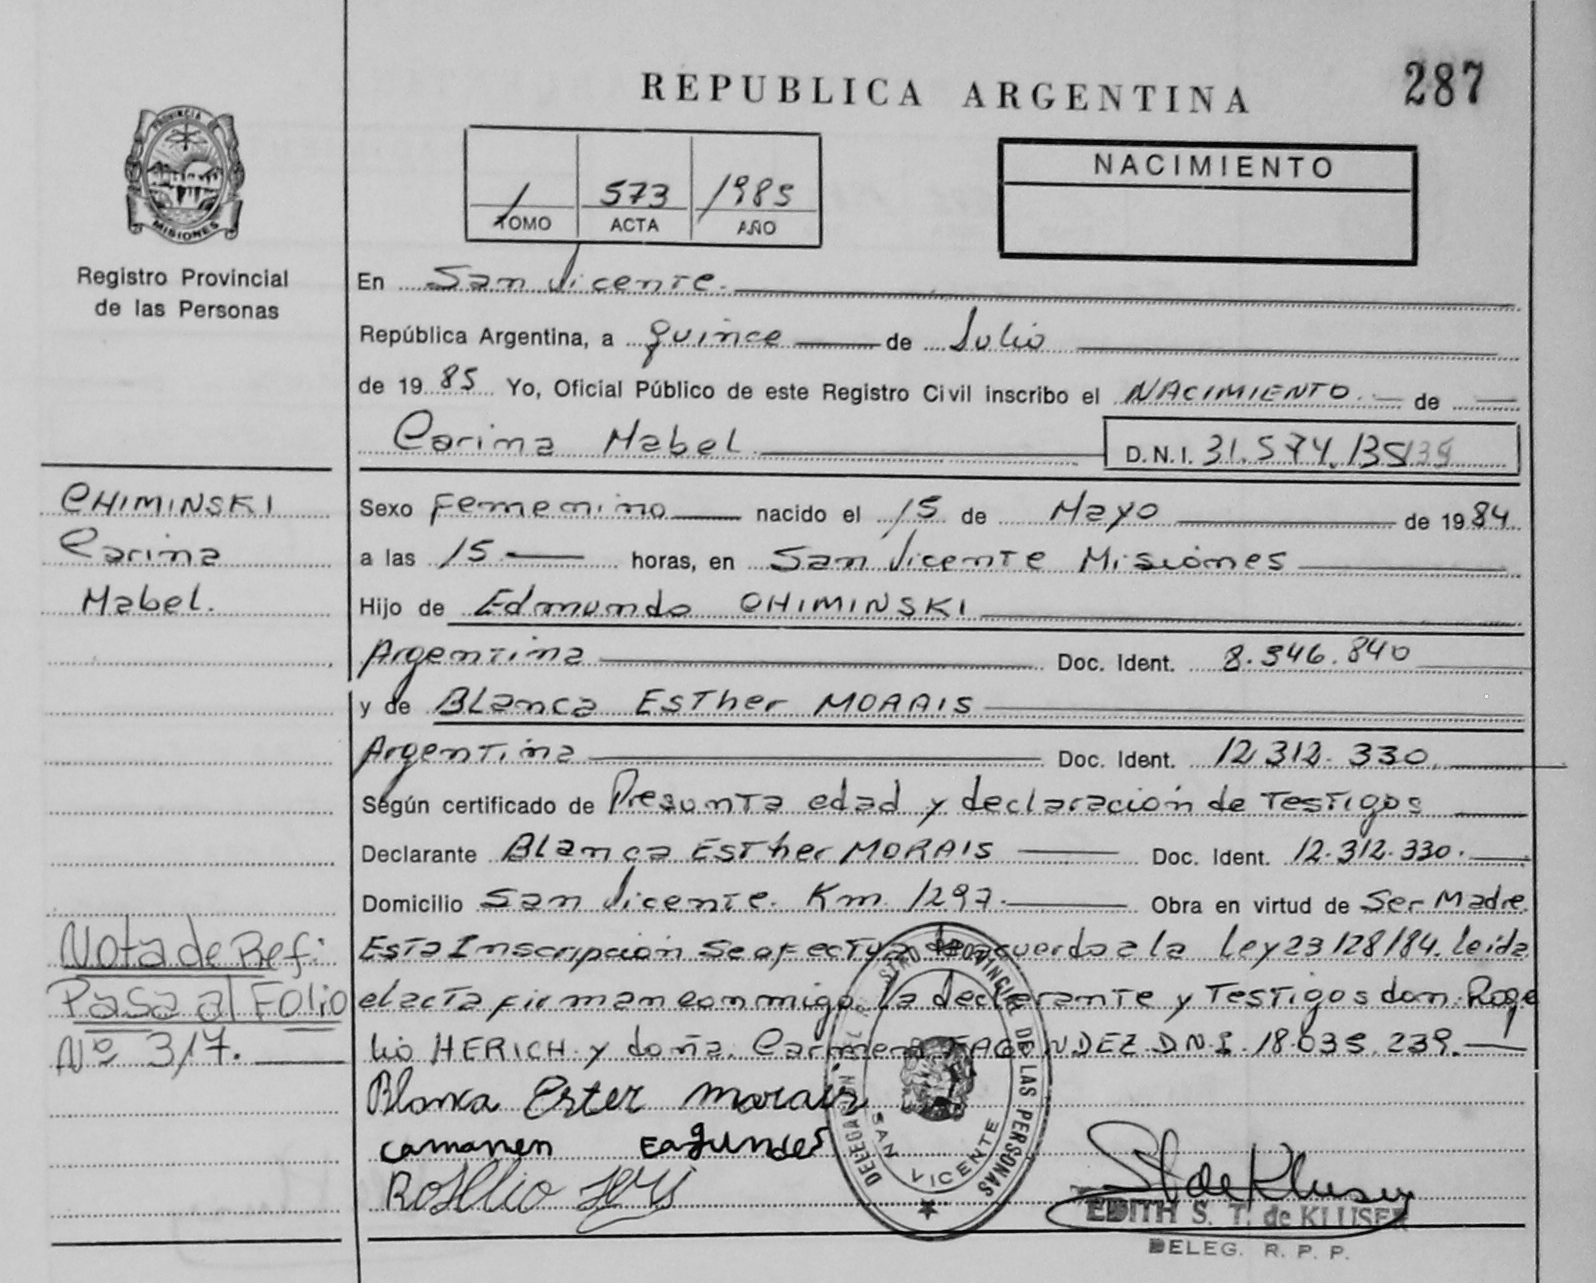 REPUBLICA ARGENTINA
287
PROVINCIA DE
MISIONES
Registro Provincial
de las Personas
1 573 1985
TOMO ACTA AÑO
NACIMIENTO
En San Vicente.
República Argentina, a quince de Julio
de 1985 Yo, Oficial Público de este Registro Civil inscribo el NACIMIENTO. de
Carina Mabel
D.N.I. 31.574.135
CHIMINSKI
Carina
Mabel.
Sexo Femenino nacido el 15 de Mayo de 1984
a las 15 horas, en San Vicente Misiones
Hijo de Edmundo CHIMINSKI
Argentina Doc. Ident. 8.546.840
y de Blanca Esther MORAIS
Argentina Doc. Ident. 12.312.330.
Según certificado de Presunta edad y declaración de Testigos
Declarante Blanca Esther MORAIS Doc. Ident. 12.312.330.
Domicilio San Vicente. Km 1297. Obra en virtud de Ser Madre.
Esta Inscripción se efectua de acuerdo a la Ley 23128/84. leida
el acta firman conmigo la declarante y Testigos don: Roge
lio HERICH y doña. Carmen FAGUNDEZ D.N.I. 18.035.239.
Nota de Ref:
Pasa al Folio
Nº 317.
Blanca Ester morais
camanen Eagundes
Roselio
DELEGACION DEL REGISTRO PROVINCIAL DE LAS PERSONAS
SAN VICENTE
EDITH S. T. de KLUSER
DELEG. R. P. P.